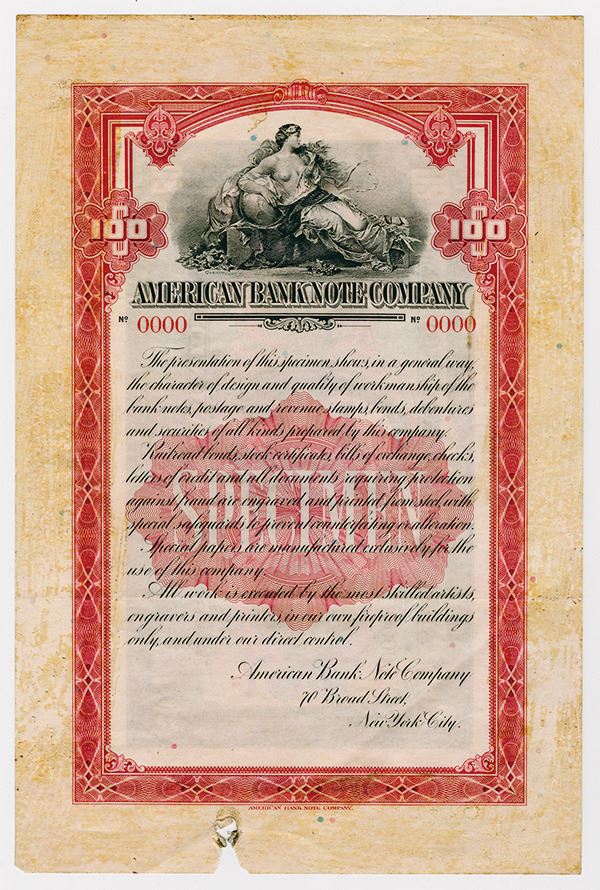 $100 $100
AMERICAN BANK NOTE COMPANY
Nº 0000 Nº 0000
The presentation of this specimen shows, in a general way,
the character of design and quality of workmanship of the
bank notes, postage and revenue stamps, bonds, debentures
and securities of all kinds prepared by this company.
Railroad bonds, stock certificates, bills of exchange, checks,
letters of credit and all documents requiring protection
against fraud are engraved and printed from steel, with
SPECIMEN
special safeguards to prevent counterfeiting or alteration.
Special papers are manufactured exclusively for the
use of this company.
All work is executed by the most skilled artists,
engravers and printers, in our own fireproof buildings
only, and under our direct control.
American Bank Note Company
70 Broad Street,
New York City.
AMERICAN BANK NOTE COMPANY.